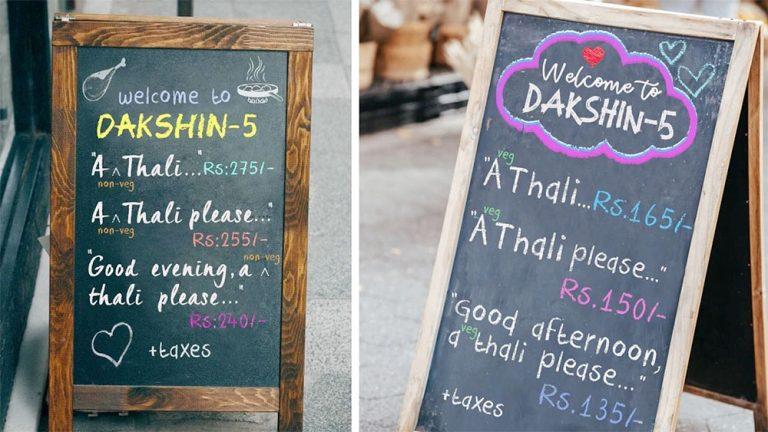 welcome to
DAKSHIN-5
"A ^ Thali..." Rs:275/-
non-veg
A ^ Thali please..."
non-veg
Rs:255/-
non-veg
"Good evening, a ^
thali please..."
Rs:240/-
+taxes
Welcome to
DAKSHIN-5
veg
"A Thali... Rs.165/-
veg
"A Thali please..."
Rs.150/-
"Good afternoon,
veg
a thali please..."
+taxes Rs.135/-